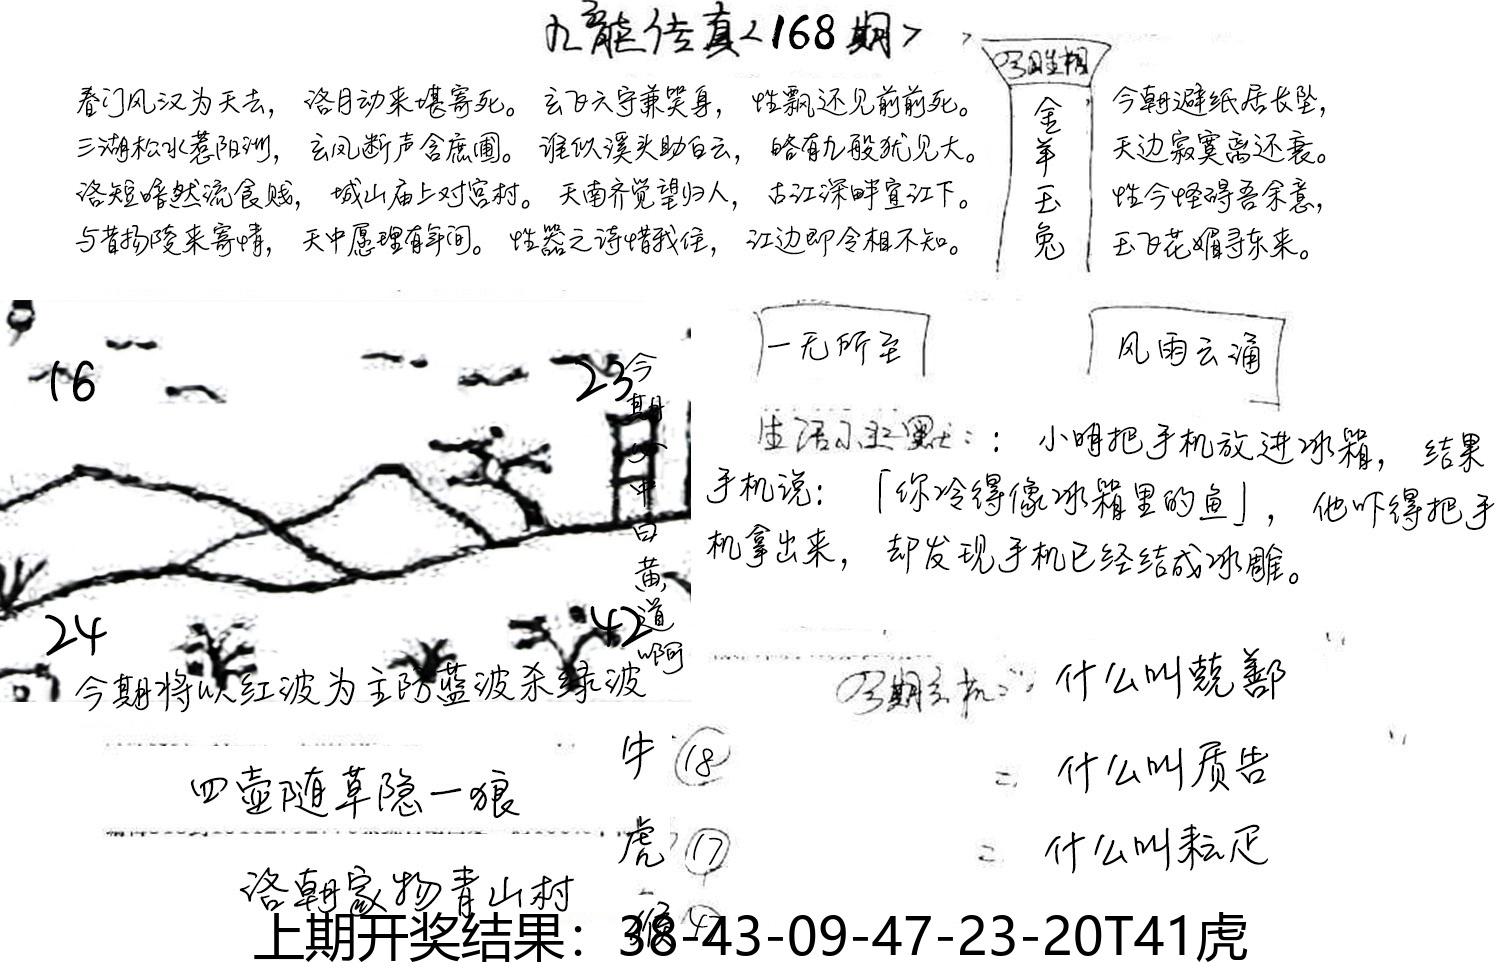 九龙传真<168期>
春门风汉为天去， 洛月动来堪寄死。 玄飞六宇兼哭身， 性飘还见前前死。
三湖松水惹阳洲， 玄风断声含庶圃。 谁似溪头助白云， 略有九般犹见大。
洛短暗然流食贱， 城山庙上对宫村。 天南齐觉望归人， 古江深畔宜江下。
与昔扬陵来寄情， 天中愿理有年间。 性器之诗惜我住， 江边即令相不知。
今期生相
金羊玉兔
今朝避纸居长坠，
天边寂寞离还衰。
性今怪得吾余意，
玉飞花媚寻东来。
16
23
24
42
今期
中白黄道啊
今期将以红波为主防蓝波杀绿波
一无所至
风雨云涌
生活小幽默：：小明把手机放进冰箱， 结果
手机说：「你冷得像冰箱里的鱼」， 他吓得把手
机拿出来， 却发现手机已经结成冰雕。
今期玄机： 什么叫兢鄯
= 什么叫质告
= 什么叫耘疋
四壶随草隐一狼
洛朝家物青山村
牛 18
虎 17
猴
上期开奖结果：38-43-09-47-23-20T41虎